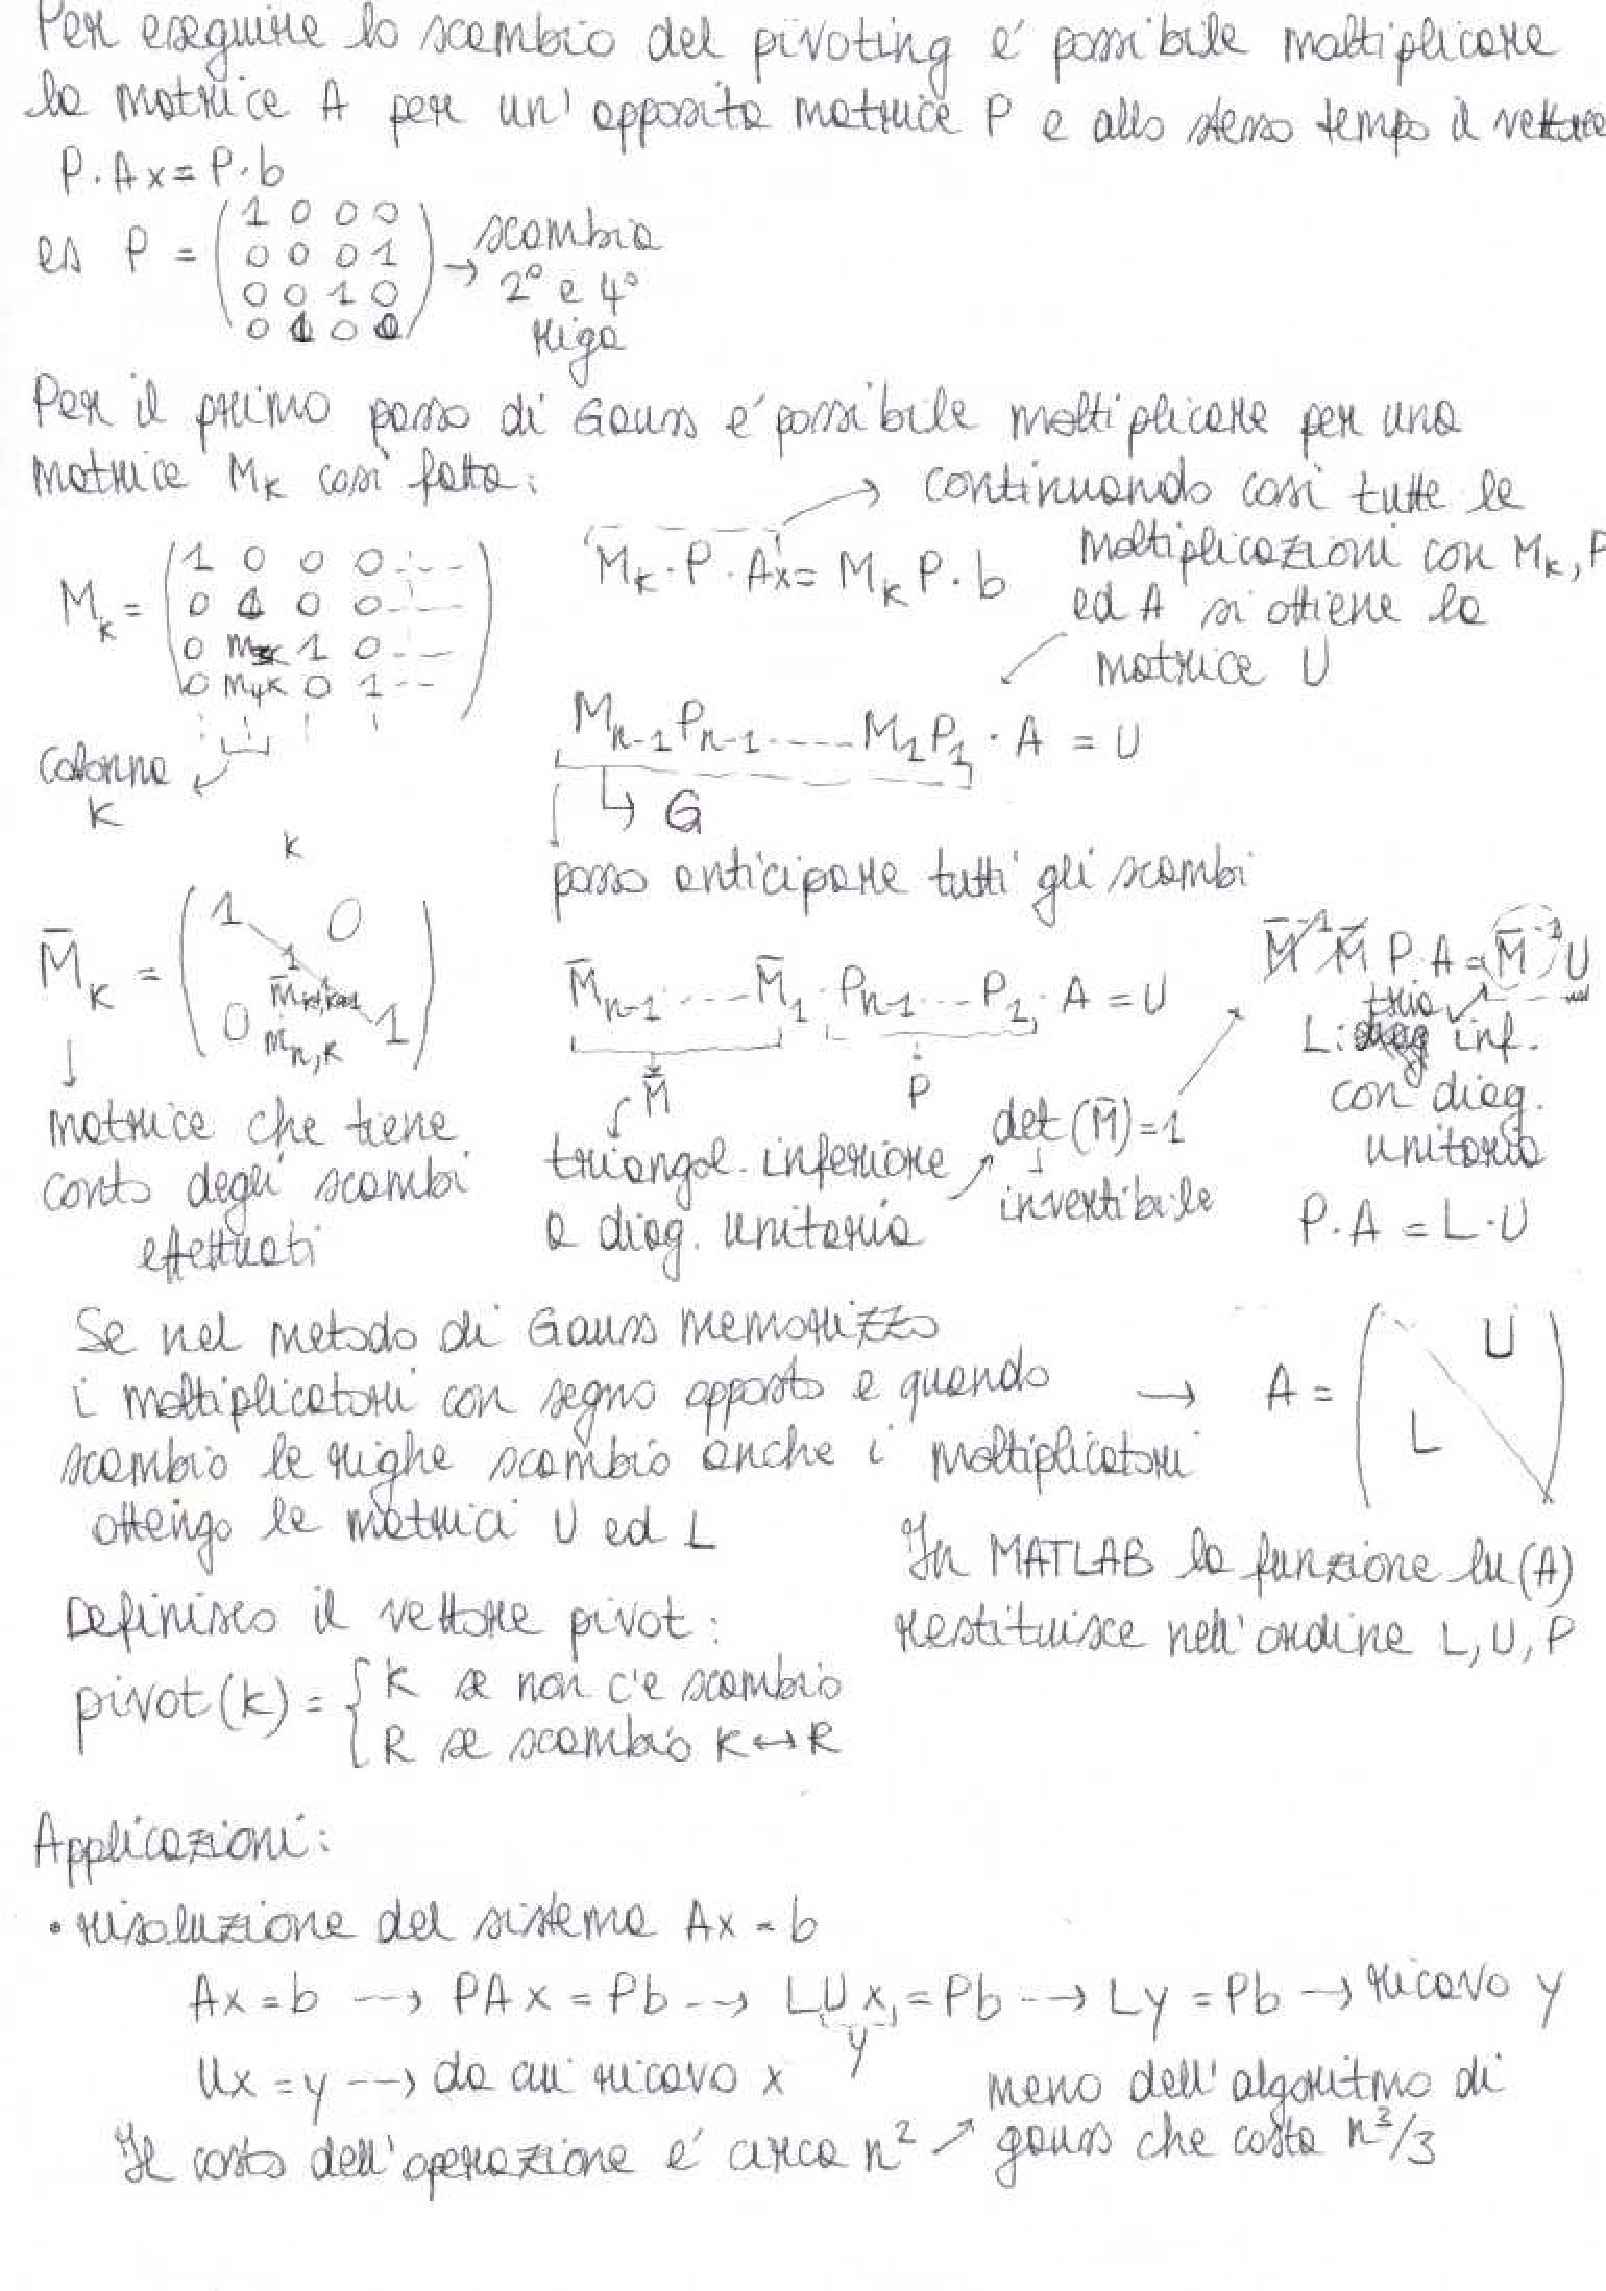 Per eseguire lo scambio del pivoting e' possibile moltiplicare
la matrice A per un' apposita matrice P e allo stesso tempo il vettore
P·Ax = P·b
es P = (1 0 0 0
0 0 0 1
0 0 1 0
0 1 0 0) → scambia
2° e 4°
riga
Per il primo passo di Gauss e' possibile moltiplicare per una
matrice Mk così fatta:
Mk = (1 0 0 0 ---
0 1 0 0 ---
0 m3k 1 0 ---
0 m4k 0 1 --)
colonna
k
Mk·P·Ax = Mk P·b
continuando così tutte le
moltiplicazioni con Mk, P
ed A si ottiene la
matrice U
Mn-1 Pn-1 ...... M1 P1 · A = U
G
posso anticipare tutti gli scambi
k
M̄k = (1 0
1
m̄k+1,k 1
0 m̄n,k 1)
matrice che tiene
conto degli scambi
effettuati
M̄n-1 ...... M̄1 · Pn-1 ... P1 · A = U
M̄ P
triangol. inferiore
a diag. unitaria
det(M̄) = 1
invertibile
M̄⁻¹ M̄ P·A = M̄⁻¹ U
L: tria inf.
con diag.
unitaria
P·A = L·U
Se nel metodo di Gauss memorizzo
i moltiplicatori con segno opposto e quando
scambio le righe scambio anche i moltiplicatori
ottengo le matrici U ed L
→ A = ( U
L )
In MATLAB la funzione lu(A)
restituisce nell'ordine L, U, P
Definisco il vettore pivot:
pivot(k) = { k se non c'e scambio
R se scambio k↔R
Applicazioni:
• risoluzione del sistema Ax = b
Ax = b --→ PAx = Pb --→ LUx = Pb --→ Ly = Pb → ricavo y
y
Ux = y --→ da cui ricavo x
Il costo dell'operazione e' circa n² ↗
meno dell'algoritmo di
gauss che costa n³/3